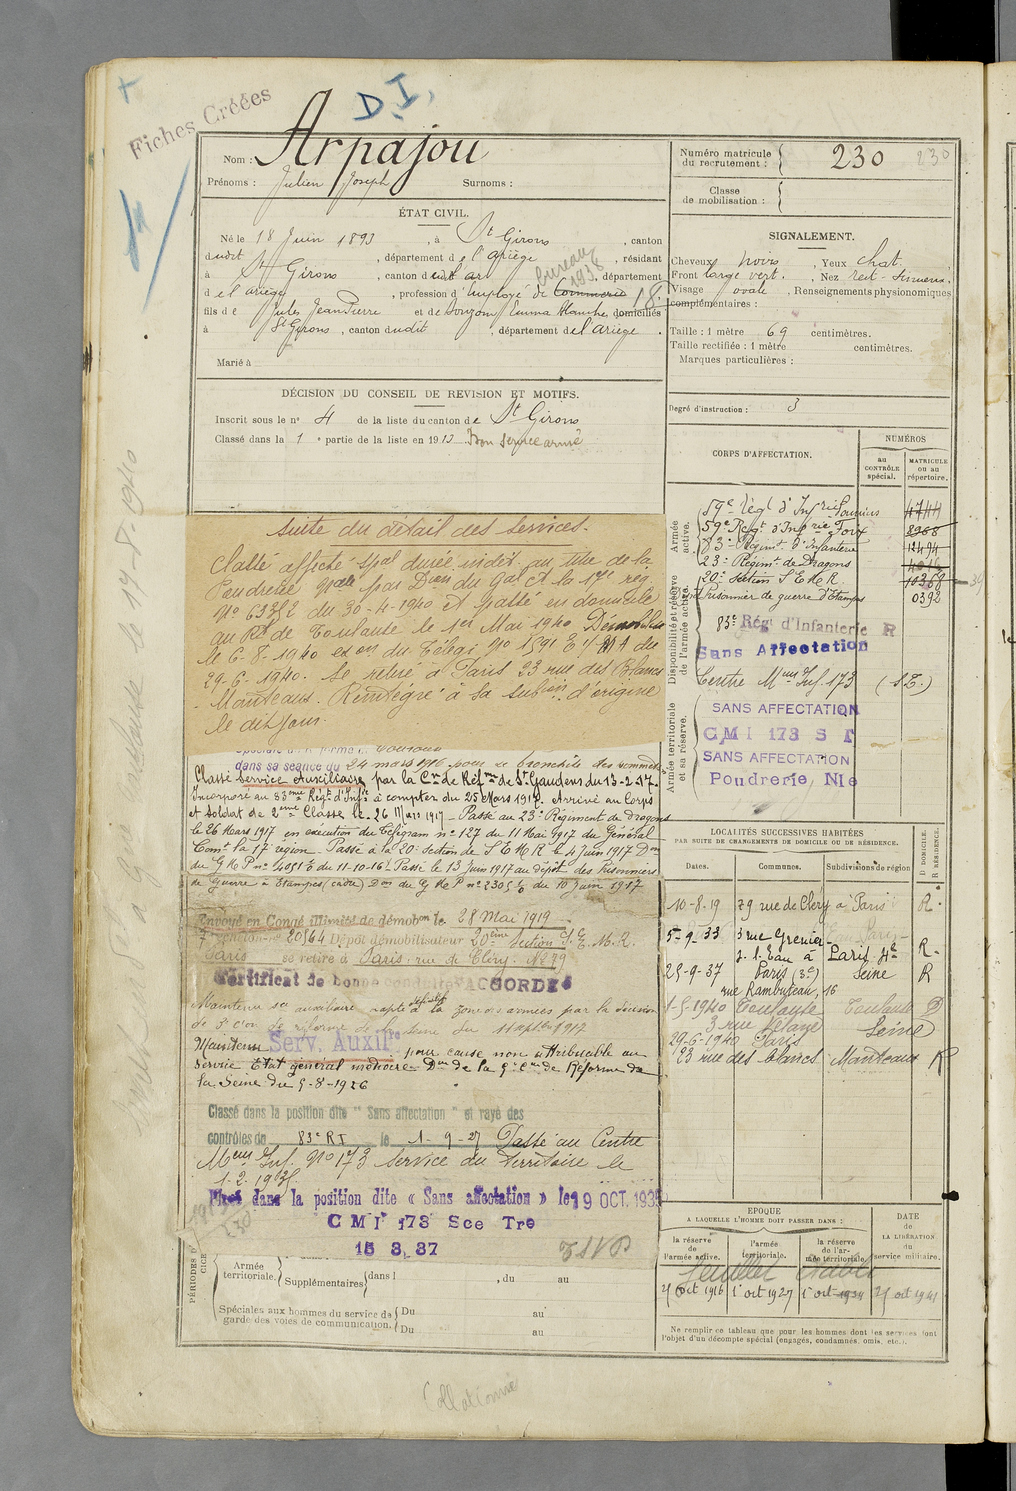 D.I.
Fiches Créées
Nom : Arpajou
Prénoms : Julien Joseph Surnoms :
ÉTAT CIVIL.
Né le 18 Juin 1893, à St Girons, canton
dudit, département de l'ariège, résidant
à St Girons, canton dudit, département
del ariège, profession d'employé de Commerce bureau 1936
fils de Jules Jean Pierre et de Emma Blanche, domiciliés 18.
à St Girons, canton dudit, département del ariège.
Marié à
DÉCISION DU CONSEIL DE REVISION ET MOTIFS.
Inscrit sous le n° 4 de la liste du canton de St Girons
Classé dans la 1e partie de la liste en 1913 Bon service armé
Suite du détail des services.
Classé affecté spal durée indét. au titre de la
Poudrerie Nale par Don du Gal Ct la 17e reg.
du 30-4-1940 et passé en domicile
au Rt de Toulouse le 1er Mai 1940 Démobilisé
le 6-8-1940 exon du Télég. no
29-6-1940. Se retire à Paris 23 rue des Blancs
Manteaux. Réintégré à sa subion d'origine
le dit jour.
dans sa séance du 24 mars 1916 pour bronchite des sommets
Classé Service Auxiliaire par la Con de Réfme de St Gaudens du 13-2-17.
Incorporé au 83ème Régt d'Infie à compter du 25 Mars 1917. Arrivé au Corps
et Soldat de 2ème Classe le 26 Mars 1917. Passé au 23e Régiment de dragons
le 26 Mars 1917 en exécution du Télégram n° 127 du 11 Mai 1917 du Général
Comt la 17 région. Passé à la 20e section de S E M R le 4 Juin 1917 Don
du G M P n° du 11-10-16. Passé le 13 Juin 1917 au dépôt des Prisonniers
de Guerre à Etampes (cadre) Don du G M P n° du 10 Juin 1917
Envoyé en Congé illimité de démobon le 28 Mai 1919
20564 Dépôt démobilisateur 20ème Section S. E. M. R.
Paris se retire à Paris, rue de Cléry. No 79
Certificat de bonne conduite "ACCORDÉ"
Maintenu sce auxiliaire à la zone des armées par la décision
de réforme de la Seine du 11 septbre 1917
Maintenu Serv. Auxilre pour cause non attribuable au
service. Etat général médiocre. Don de la Con de Réforme de
la Seine du 5-8-1926
Classé dans la position dite "Sans affectation" et rayé des
contrôles du 83e RI le 1-9-27 Passé au Centre
Meur Inf. No 173 Service du Territoire le
1.2.1935
Placé dans la position dite « Sans affectation » le 19 OCT. 1935
C M I 173 Sce Tre
15 3. 37
TSVP
PÉRIODES D'EXERCICE
Armée territoriale. Supplémentaires dans l , du au
Spéciales aux hommes du service de garde des voies de communication. Du au
Du au
Collationné
Numéro matricule du recrutement : 230 230
Classe de mobilisation :
SIGNALEMENT.
Cheveux noirs, Yeux chat.
Front large vert., Nez rect.
Visage ovale, Renseignements physionomiques
complémentaires :
Taille : 1 mètre 69 centimètres.
Taille rectifiée : 1 mètre centimètres.
Marques particulières :
Degré d'instruction : 3
CORPS D'AFFECTATION.
NUMÉROS
au CONTRÔLE spécial.
MATRICULE ou au répertoire.
Armée active.
Disponibilité et réserve de l'armée active.
Armée territoriale et sa réserve.
59e Régt d'Infrie Pamiers
59e Regt d'Infrie Foix 8968
83e Régimt d'Infanterie 12494
23e Régimt de Dragons
20e section S E M R 10368
Prisonnier de guerre d'Etampes 0392
83e Régt d'Infanterie R
Sans Affectation
Centre Meur Inf. 173 (S.T.)
SANS AFFECTATION
C M I 173 S T
SANS AFFECTATION
Poudrerie Nle
LOCALITÉS SUCCESSIVES HABITÉES
PAR SUITE DE CHANGEMENTS DE DOMICILE OU DE RÉSIDENCE.
D DOMICILE. R RÉSIDENCE.
Dates. Communes. Subdivisions de région
10-8-19 79 rue de Cléry à Paris R.
5-9-33 3 rue Grenier
s. l. Eau à Paris 4e R
25-9-37 Paris (3e) Seine R
rue Rambuteau, 16
1-5-1940 Toulouse Toulouse D
29-6-1940 Paris Seine
23 rue des blancs Manteaux R
EPOQUE
A LAQUELLE L'HOMME DOIT PASSER DANS :
DATE DE LA LIBÉRATION du service militaire.
la réserve de l'armée active.
l'armée territoriale.
la réserve de l'armée territoriale.
Feuillet
1 oct 1916 1 oct 1927 1 oct 1934 oct 1941
Ne remplir ce tableau que pour les hommes dont les services font
l'objet d'un décompte spécial (engagés, condamnés, omis, etc.).